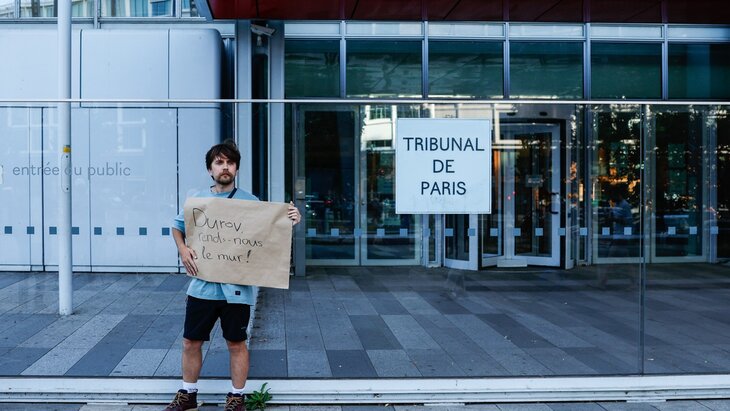 entrée du public
TRIBUNAL
DE
PARIS
Durov
rends-nous
le mur!